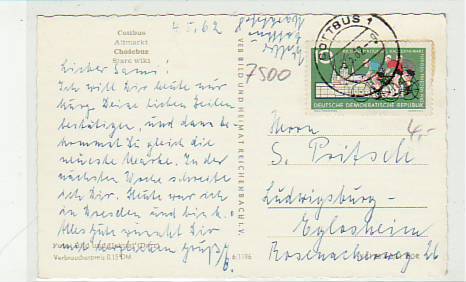 Cottbus
Altmarkt
Chośebuz
Stare wiki
4.5.62
Lieber Sami!
Ich will Dir heute nur
kurz Deine lieben Zeilen
bestätigen, und dann be-
kommst Du gleich die
neueste Marke. In der
nächsten Woche schreibe
ich Dir. Heute war ich
in Dresden und bin k.
Alles Gute wünscht Dir
mit herzlichen Gruß
Verbraucherpreis 0.15 DM
VEB BILD UND HEIMAT REICHENBACH I. V.
7500
COTTBUS 1
DEUTSCHE DEMOKRATISCHE REPUBLIK
4,-
Herrn
S. Pritsch
Ludwigsburg-
Eglosheim